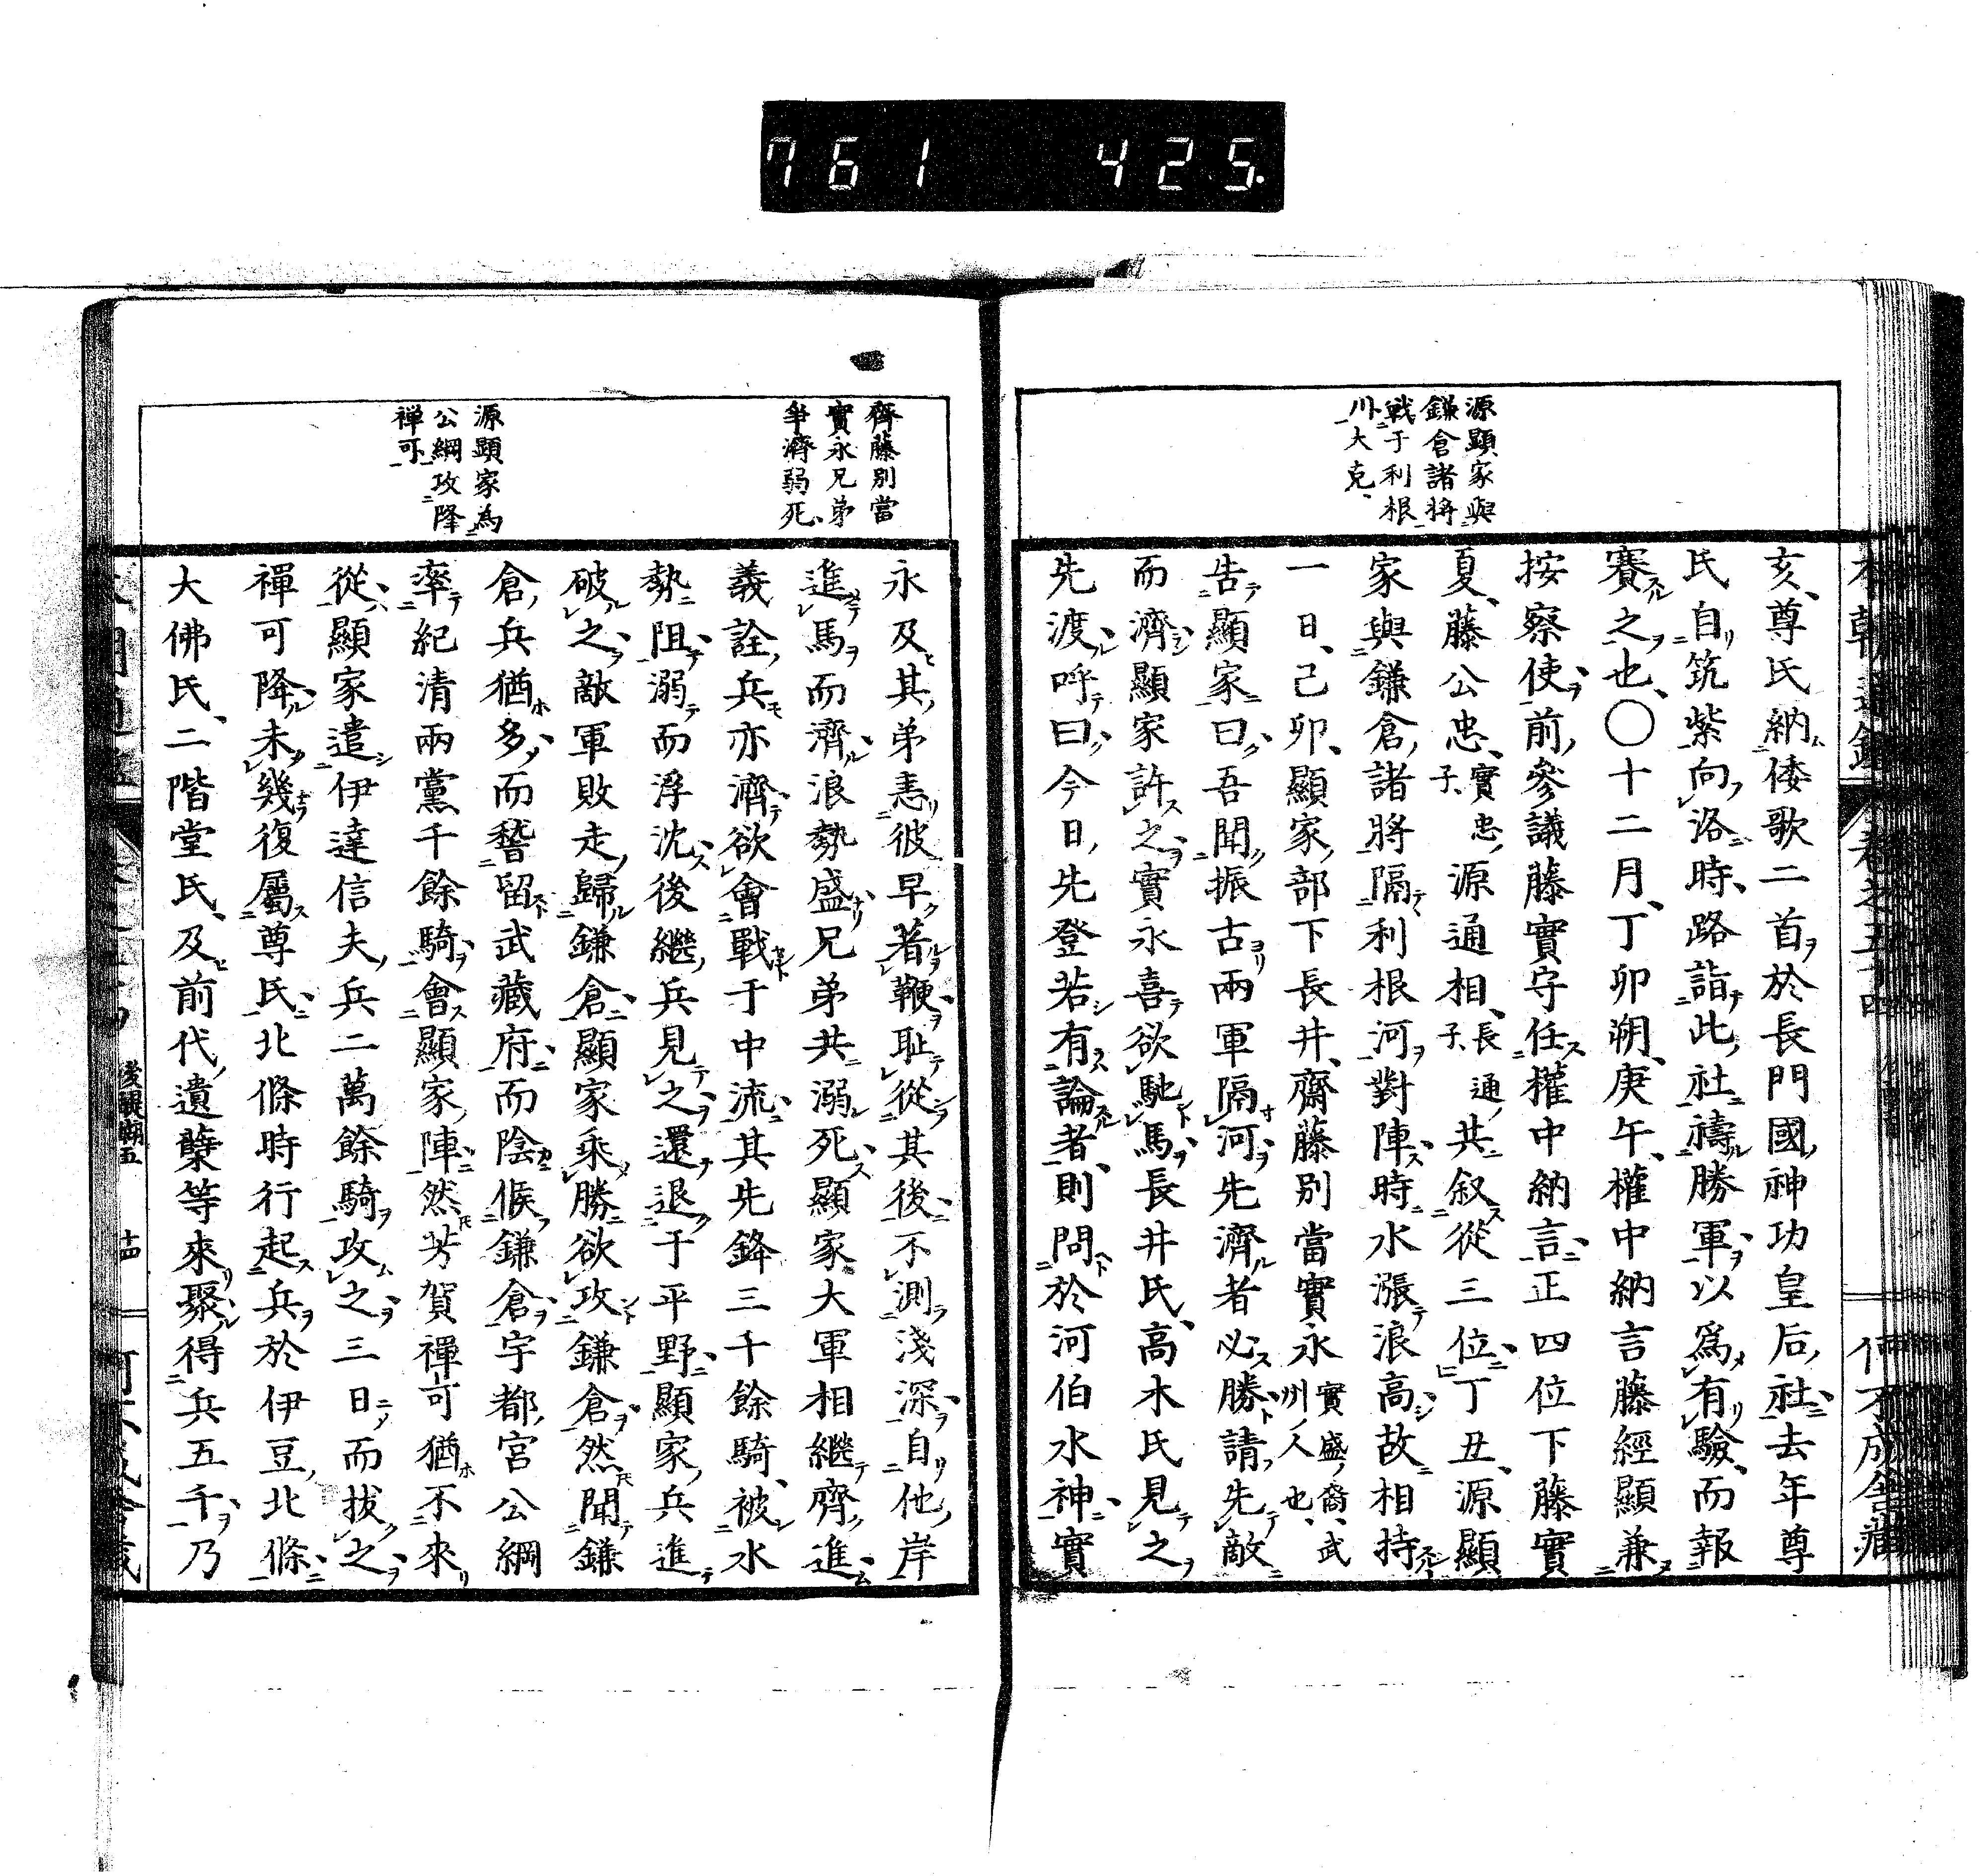 761 425.
源顯家與
鎌倉諸將
戰于利根
川大克
亥尊氏納倭歌二首於長門國神功皇后社去年尊
氏自筑紫向洛時路詣此社禱勝軍以爲有驗而報
賽之也〇十二月丁卯朔庚午權中納言藤經顯兼
按察使前參議藤實守任權中納言正四位下藤實
夏藤公忠實忠子源通相長通子共叙從三位丁丑源顯
家與鎌倉諸將隔利根河對陣時水漲浪高故相持
一日己卯顯家部下長井齋藤別當實永實盛裔武州人也
告顯家曰吾聞振古兩軍隔河先濟者必勝請先敵
而濟顯家許之實永喜欲馳馬長井氏高木氏見之
先渡呼曰今日先登若有論者則問於河伯水神實
齊藤別當
實永兄弟
爭濟溺死
源顯家爲
公綱攻降
禅可
永及其弟恚彼早著鞭恥從其後不測淺深自他岸
進馬而濟浪勢盛兄弟共溺死顯家大軍相繼齊進
義詮兵亦濟欲會戰于中流其先鋒三千餘騎被水
勢阻溺而浮沈後繼兵見之還退于平野顯家兵進
破之敵軍敗走歸鎌倉顯家乘勝欲攻鎌倉然聞鎌
倉兵猶多而瞀留武藏府而陰候鎌倉宇都宮公綱
率紀清兩黨千餘騎會顯家陣然芳賀禪可猶不來
從顯家遣伊達信夫兵二萬餘騎攻之三日而拔之
禪可降未幾復屬尊氏北條時行起兵於伊豆北條
大佛氏二階堂氏及前代遺蘖等來聚得兵五千乃
後醍醐五
十四